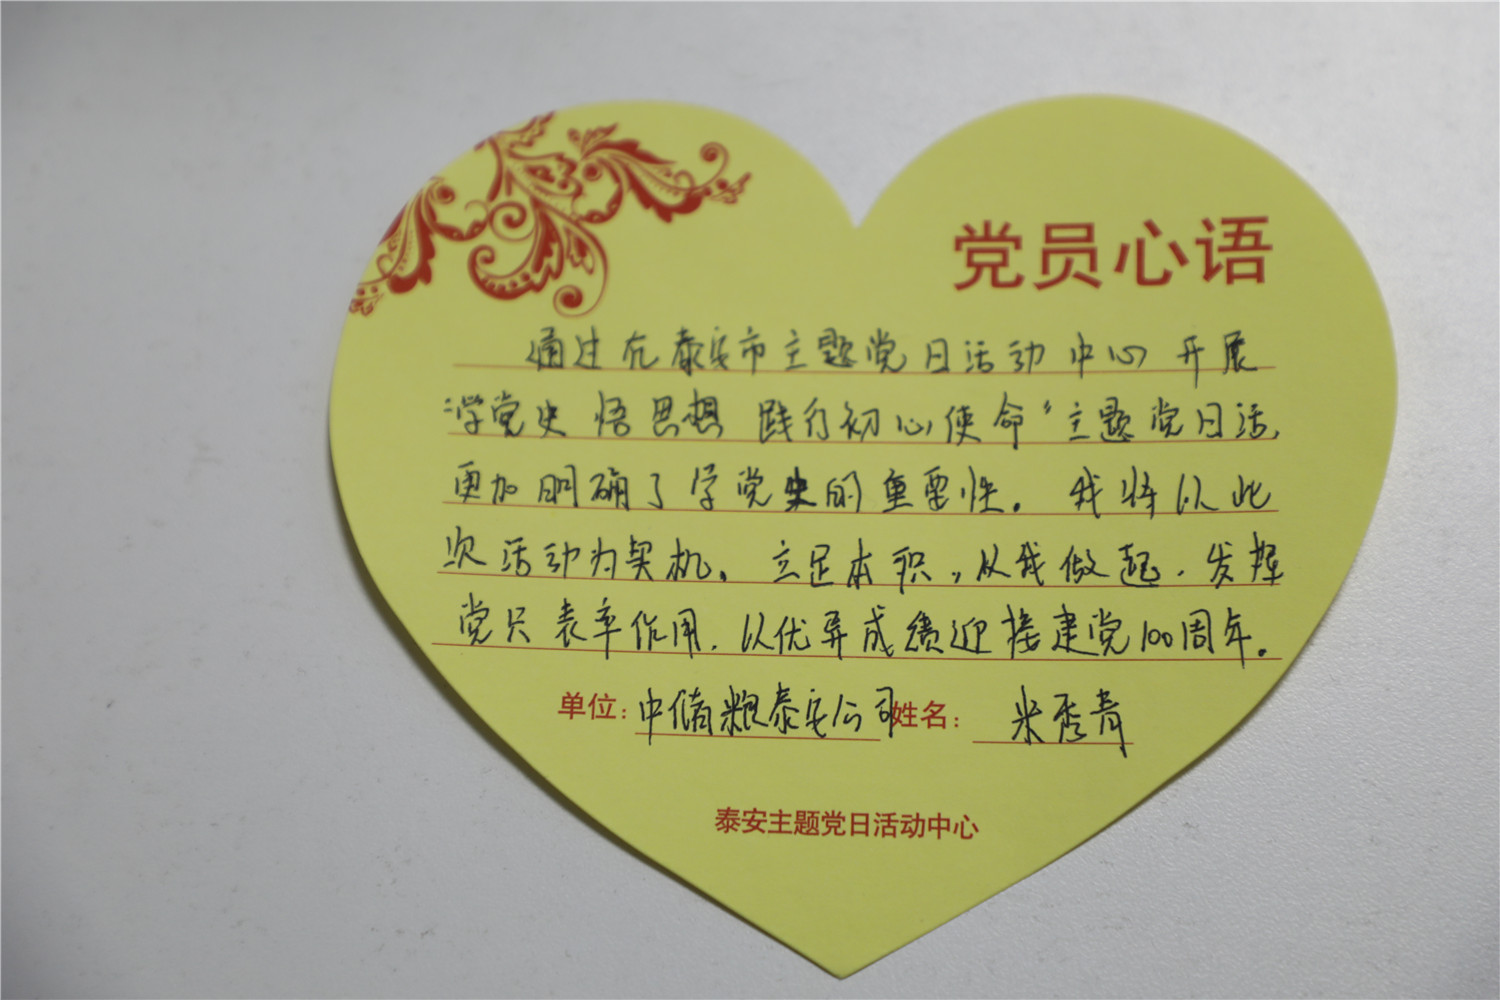 党员心语
通过在泰安市主题党日活动中心开展
"学党史 悟思想 践行初心使命"主题党日活,
更加明确了学党史的重要性。我将以此
次活动为契机,立足本职,从我做起,发挥
党员表率作用,以优异成绩迎接建党100周年。
单位:中储粮泰安公司 姓名:米秀青
泰安主题党日活动中心